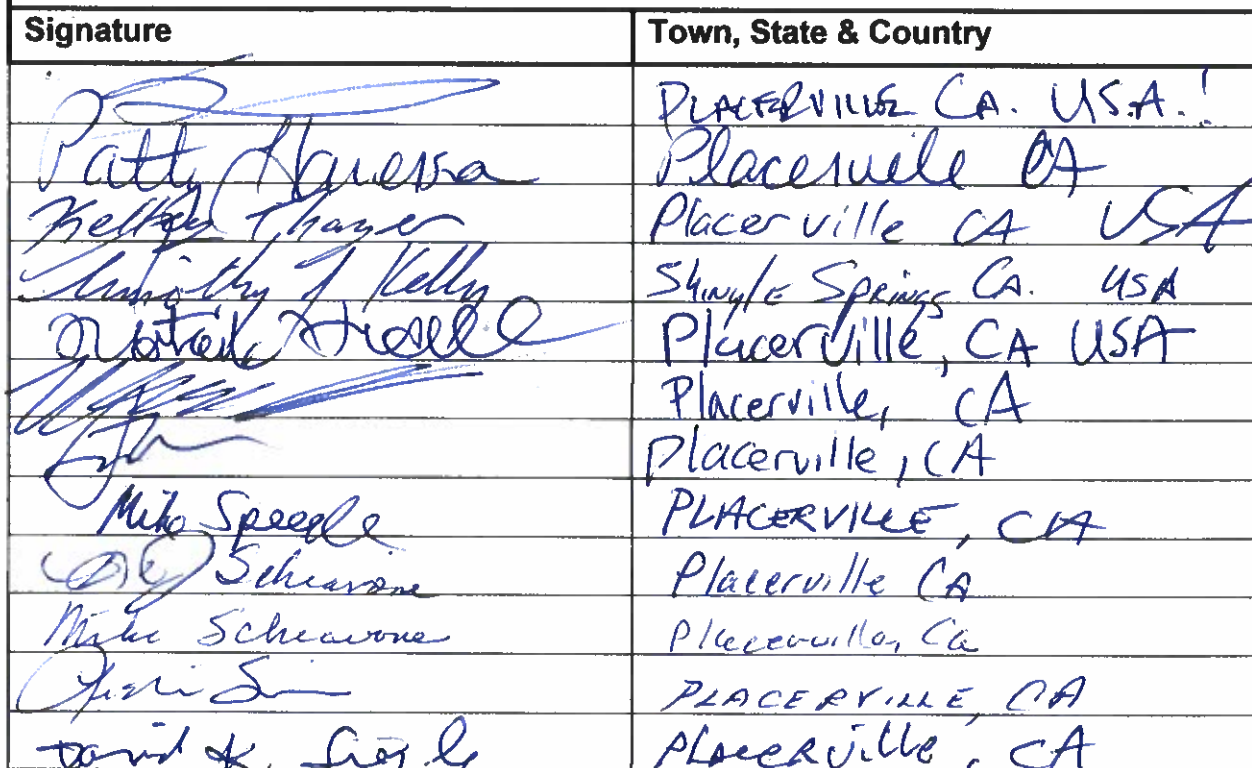 Signature Town, State & Country
PLACERVILLE CA. U.S.A.!
Patty Placerville CA
Kelley Thayer Placerville CA USA
Timothy J Kelly Shingle Springs CA. USA
Placerville, CA USA
Placerville, CA
Placerville, CA
Mike Speegle PLACERVILLE, CA
Schiavone Placerville CA
Mike Schiavone Placerville, Ca
PLACERVILLE, CA
David K. Placerville, CA